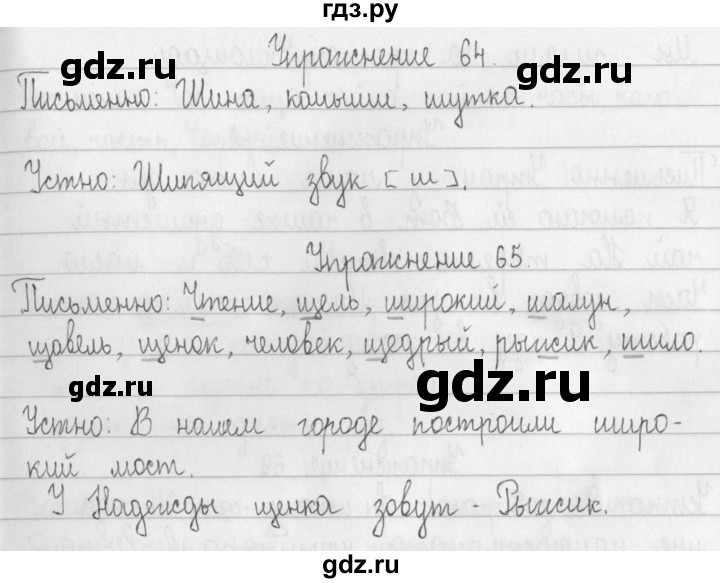 гдз.ру
Упражнение 64.
gdz.ru gdz.ru
Письменно: Шина, камыши, шутка.
Устно: Шипящий звук [ш].
gdz.ru
Упражнение 65.
gdz.ru gdz.ru
Письменно: Чтение, щель, широкий, шалун,
щавель, щенок, человек, щедрый, рыжик, шило.
gdz.ru
Устно: В нашем городе построили широ-
кий мост.
gdz.ru gdz.ru
У Надежды щенка зовут - Рыжик.
gdz.ru